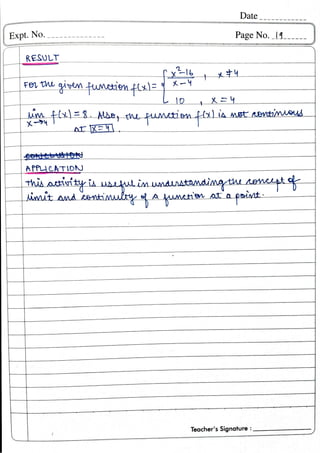 Date
Expt. No.
Page No. 19
RESULT
For the given function f(x) = { x²-16 / x-4 , x ≠ 4
10 , x = 4
lim x→4 f(x) = 8. Also, the function f(x) is not continuous
at x=4.
CONCLUSION
APPLICATION
This activity is useful in understanding the concept of
limit and continuity of a function at a point.
Teacher's Signature :